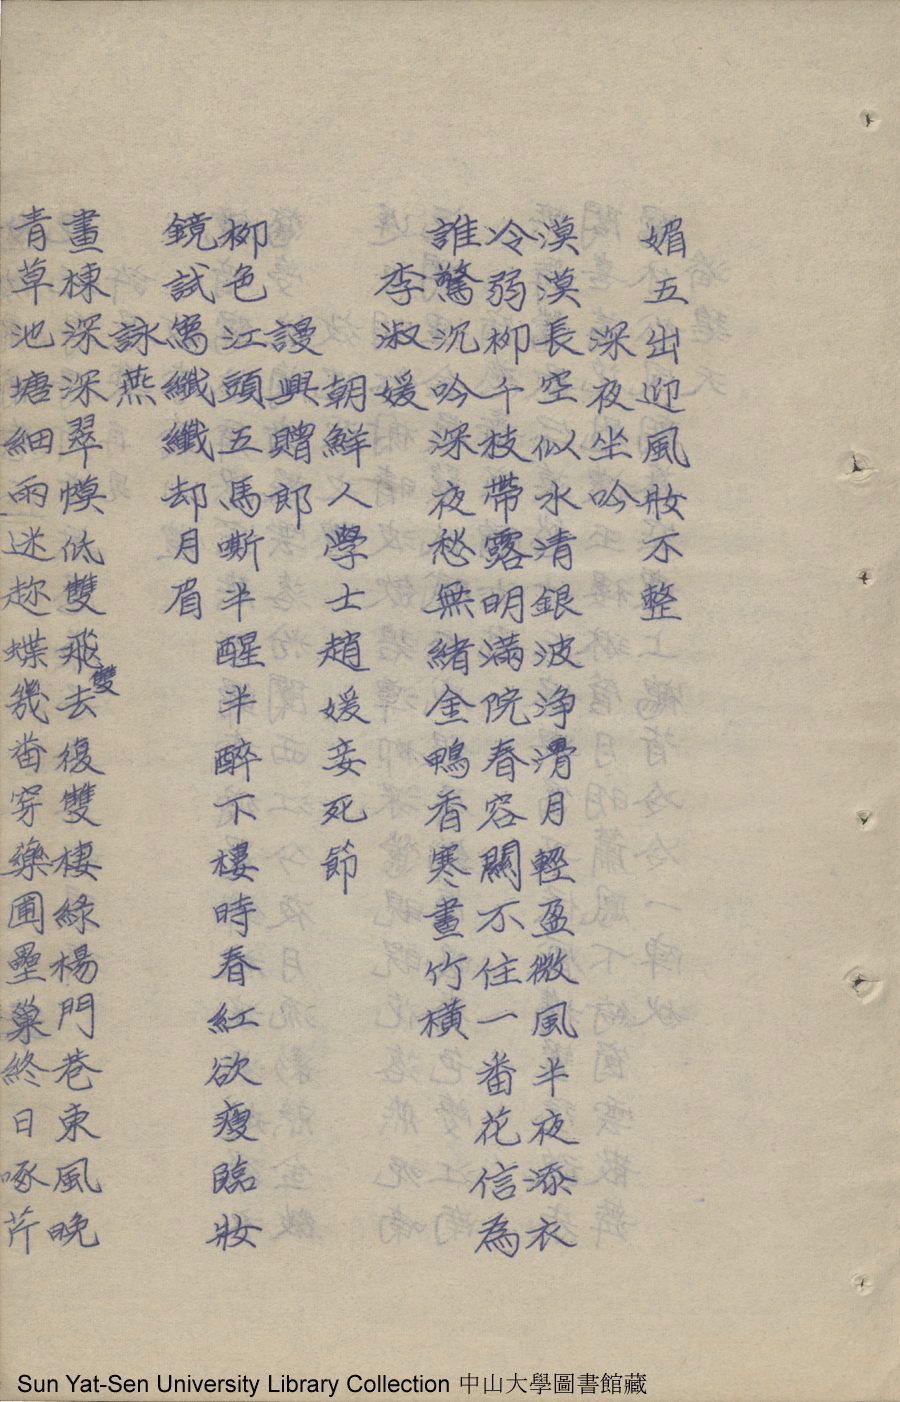 媚五出迎風妝不整
深夜坐吟
漠漠長空似水清銀波浄滑月輕盈微風半夜添衣
冷弱柳千枝帶露明滿院春容關不住一番花信為
誰驚沉吟深夜愁無緒金鴨香寒畫竹橫
李淑媛
朝鮮人學士趙媛妾死節
謾興贈郎
柳色江頭五馬嘶半醒半醉下樓時春紅欲瘦臨妝
鏡試寫纖纖却月眉
詠燕
畫棟深深翠幙低雙飛去復雙棲綠楊門巷東風晚
雙
青草池塘細雨迷趂蝶幾畨穿藥圃壘巢終日啄芹
Sun Yat-Sen University Library Collection 中山大學圖書館藏